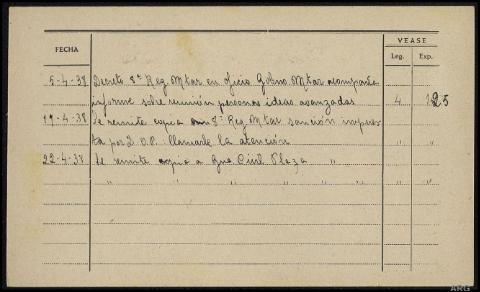 FECHA
VEASE
Leg. Exp.
5-4-38 Decreto 8ª Reg. Mtar en oficio Gobno Mtar acompaña
informe sobre reunion personas ideas avanzadas 4 25
19-4-38 Se remite copia 8ª Reg. Mtar sanción impues-
ta por D.O.P. llamarle la atención
22-4-38 Se remite copia a Gno Civil Plaza "
" " " " " "
ARG